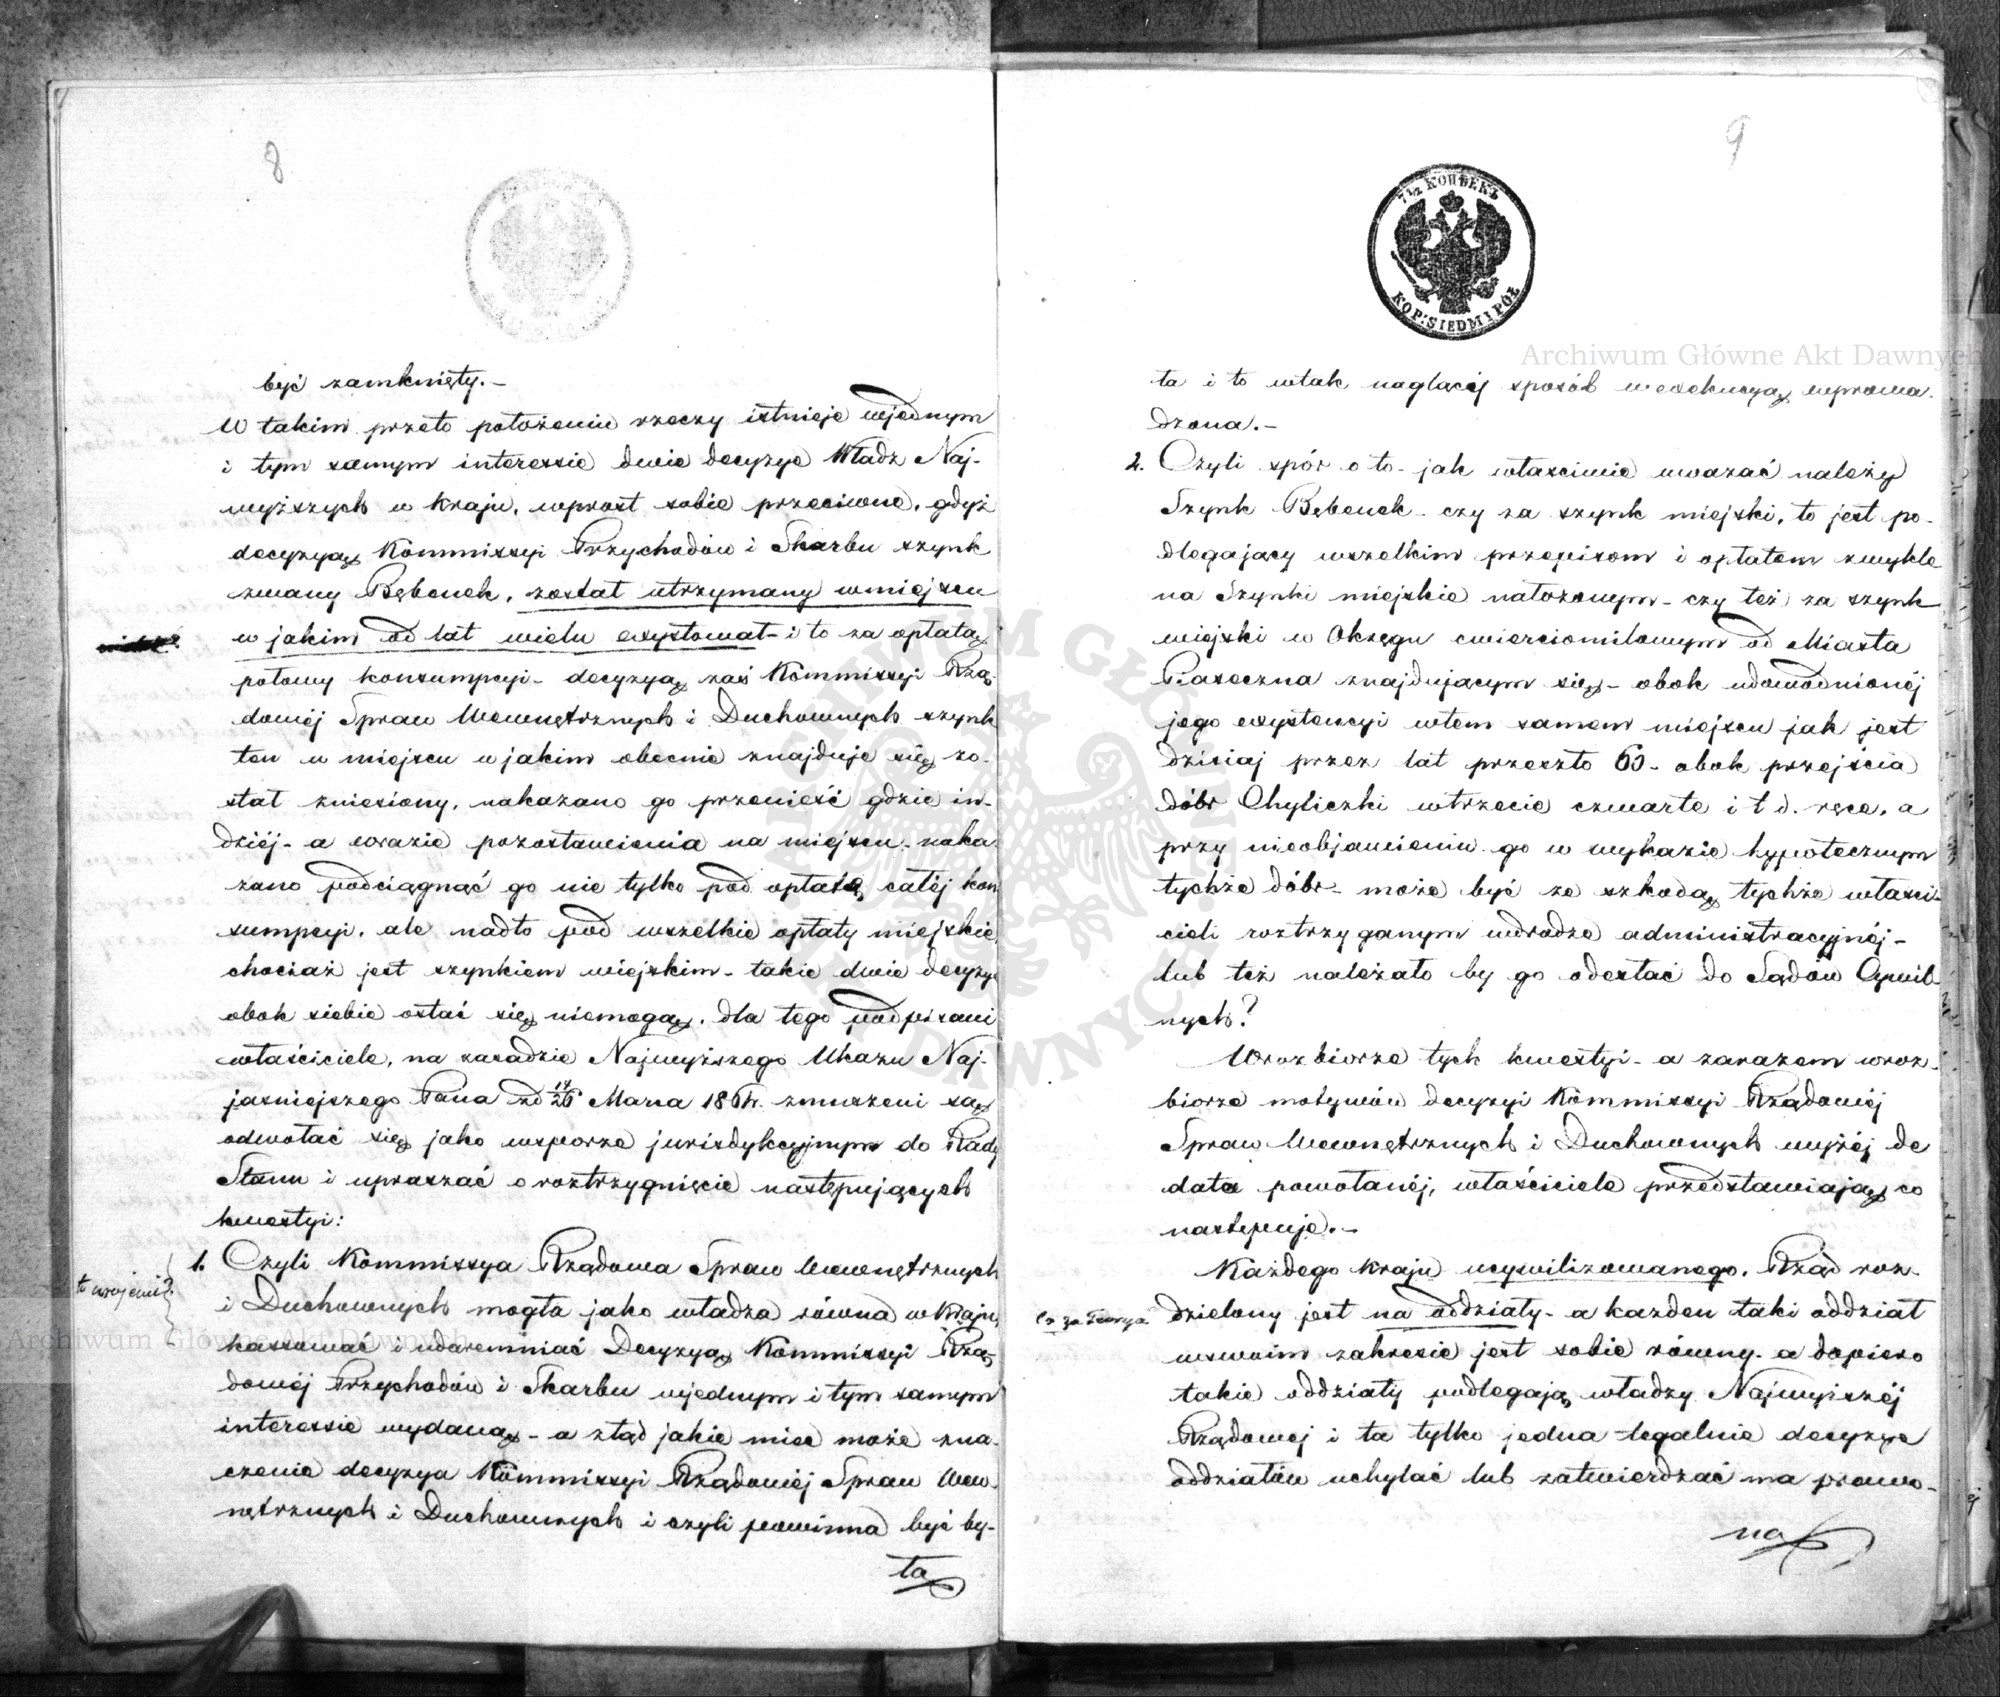 8
być zamknięty.-
W takim przeto położeniu rzeczy istnieje wjednym
i tym samym interessie dwie decyzye Władz Naj-
wyższych w Kraju, wprost sobie przeciwne, gdyż
decyzyą Kommissyi Przychodów i Skarbu szynk
zwany Bębenek, został utrzymany wmiejscu
w jakim od lat wielu exystował - i to za opłatą
połowy konsumpcyi - decyzyą zaś Kommissyi Rzą-
dowéj Spraw Wewnętrznych i Duchownych szynk
ten w miejscu w jakim obecnie znajduje się zo-
stał zniesiony, nakazano go przenieść gdzie in-
dziéj - a wrazie pozostawienia na miejscu - naka
zano podciągnąć go nie tylko pod opłatę całéj kon
sumpcyi, ale nadto pod wszelkie opłaty miejskie,
chociaż jest szynkiem wiejskim - takie dwie decyzye
obok siebie ostać się niemogą, dla tego podpisani
właściciele, na zasadzie Najwyższego Ukazu Naj-
jaśniejszego Pana zd 14/26 Marca 1864r. zmuszeni są
odwołać się jako wsporze jurisdykcyjnym do Rady
Stanu i upraszać o roztrzygnięcie następujących
kwestyi:
1. Czyli Kommissya Rządowa Spraw Wewnętrznych
i Duchownych mogła jako władza równa w Kraju,
kassować i udaremniać Decyzyą Kommissyi Rzą-
dowéj Przychodów i Skarbu wjednym i tym samym
interessie wydaną - a ztąd jakie mieć może zna-
czenie decyzya Kommissyi Rządowéj Spraw Wew-
nętrznych i Duchownych i czyli powinna być by-
ta
9
7½ КОПѢЕКЪ
KOP: SIEDM I PÓŁ
ta i to wtak naglący sposób wexekucyą wprowa-
dzona.-
2. Czyli spór o to - jak właściwie uważać należy
Szynk Bębenek - czy za szynk miejski, to jest po-
dlegający wszelkim przepisom i opłatom zwykle
na Szynki miejskie nałożonym - czy też za szynk
wiejski w Okręgu cwierciomilowym od Miasta
Piaseczna znajdującym się - obok udowodnionéj
jego exystencyi wtem samem miejscu jak jest
dzisiaj przez lat przeszło 60 - obok przejścia
dóbr Chyliczki wtrzecie czwarte i t d. ręce, a
przy nieobjawieniu go w wykazie hypotecznym
tychże dóbr - może być ze szkodą tychże właści-
cieli roztrzyganym wdrodze administracyjnéj -
lub też należało by go odesłać do Sądów Cywil-
nych?
Wrozbiorze tych kwestyi - a zarazem wroz-
biorze motywów decyzyi Kommissyi Rządowéj
Spraw Wewnętrznych i Duchownych wyżéj de
data powołanéj, właściciele przedstawiają co
następuje.-
Każdego kraju ucywilizowanego, Rząd roz-
co za teorya dzielony jest na oddziały - a każden taki oddział
wswoim zakresie jest sobie równy - a dopiero
takie oddziały podlegają władzy Najwyższéj
Rządowej i ta tylko jedna legalnie decyzye
oddziałów uchylać lub zatwierdzać ma prawo -
na
Archiwum Główne Akt Dawnych
Archiwum Główne Akt Dawnych
ARCHIWUM GŁÓWNE AKT DAWNYCH